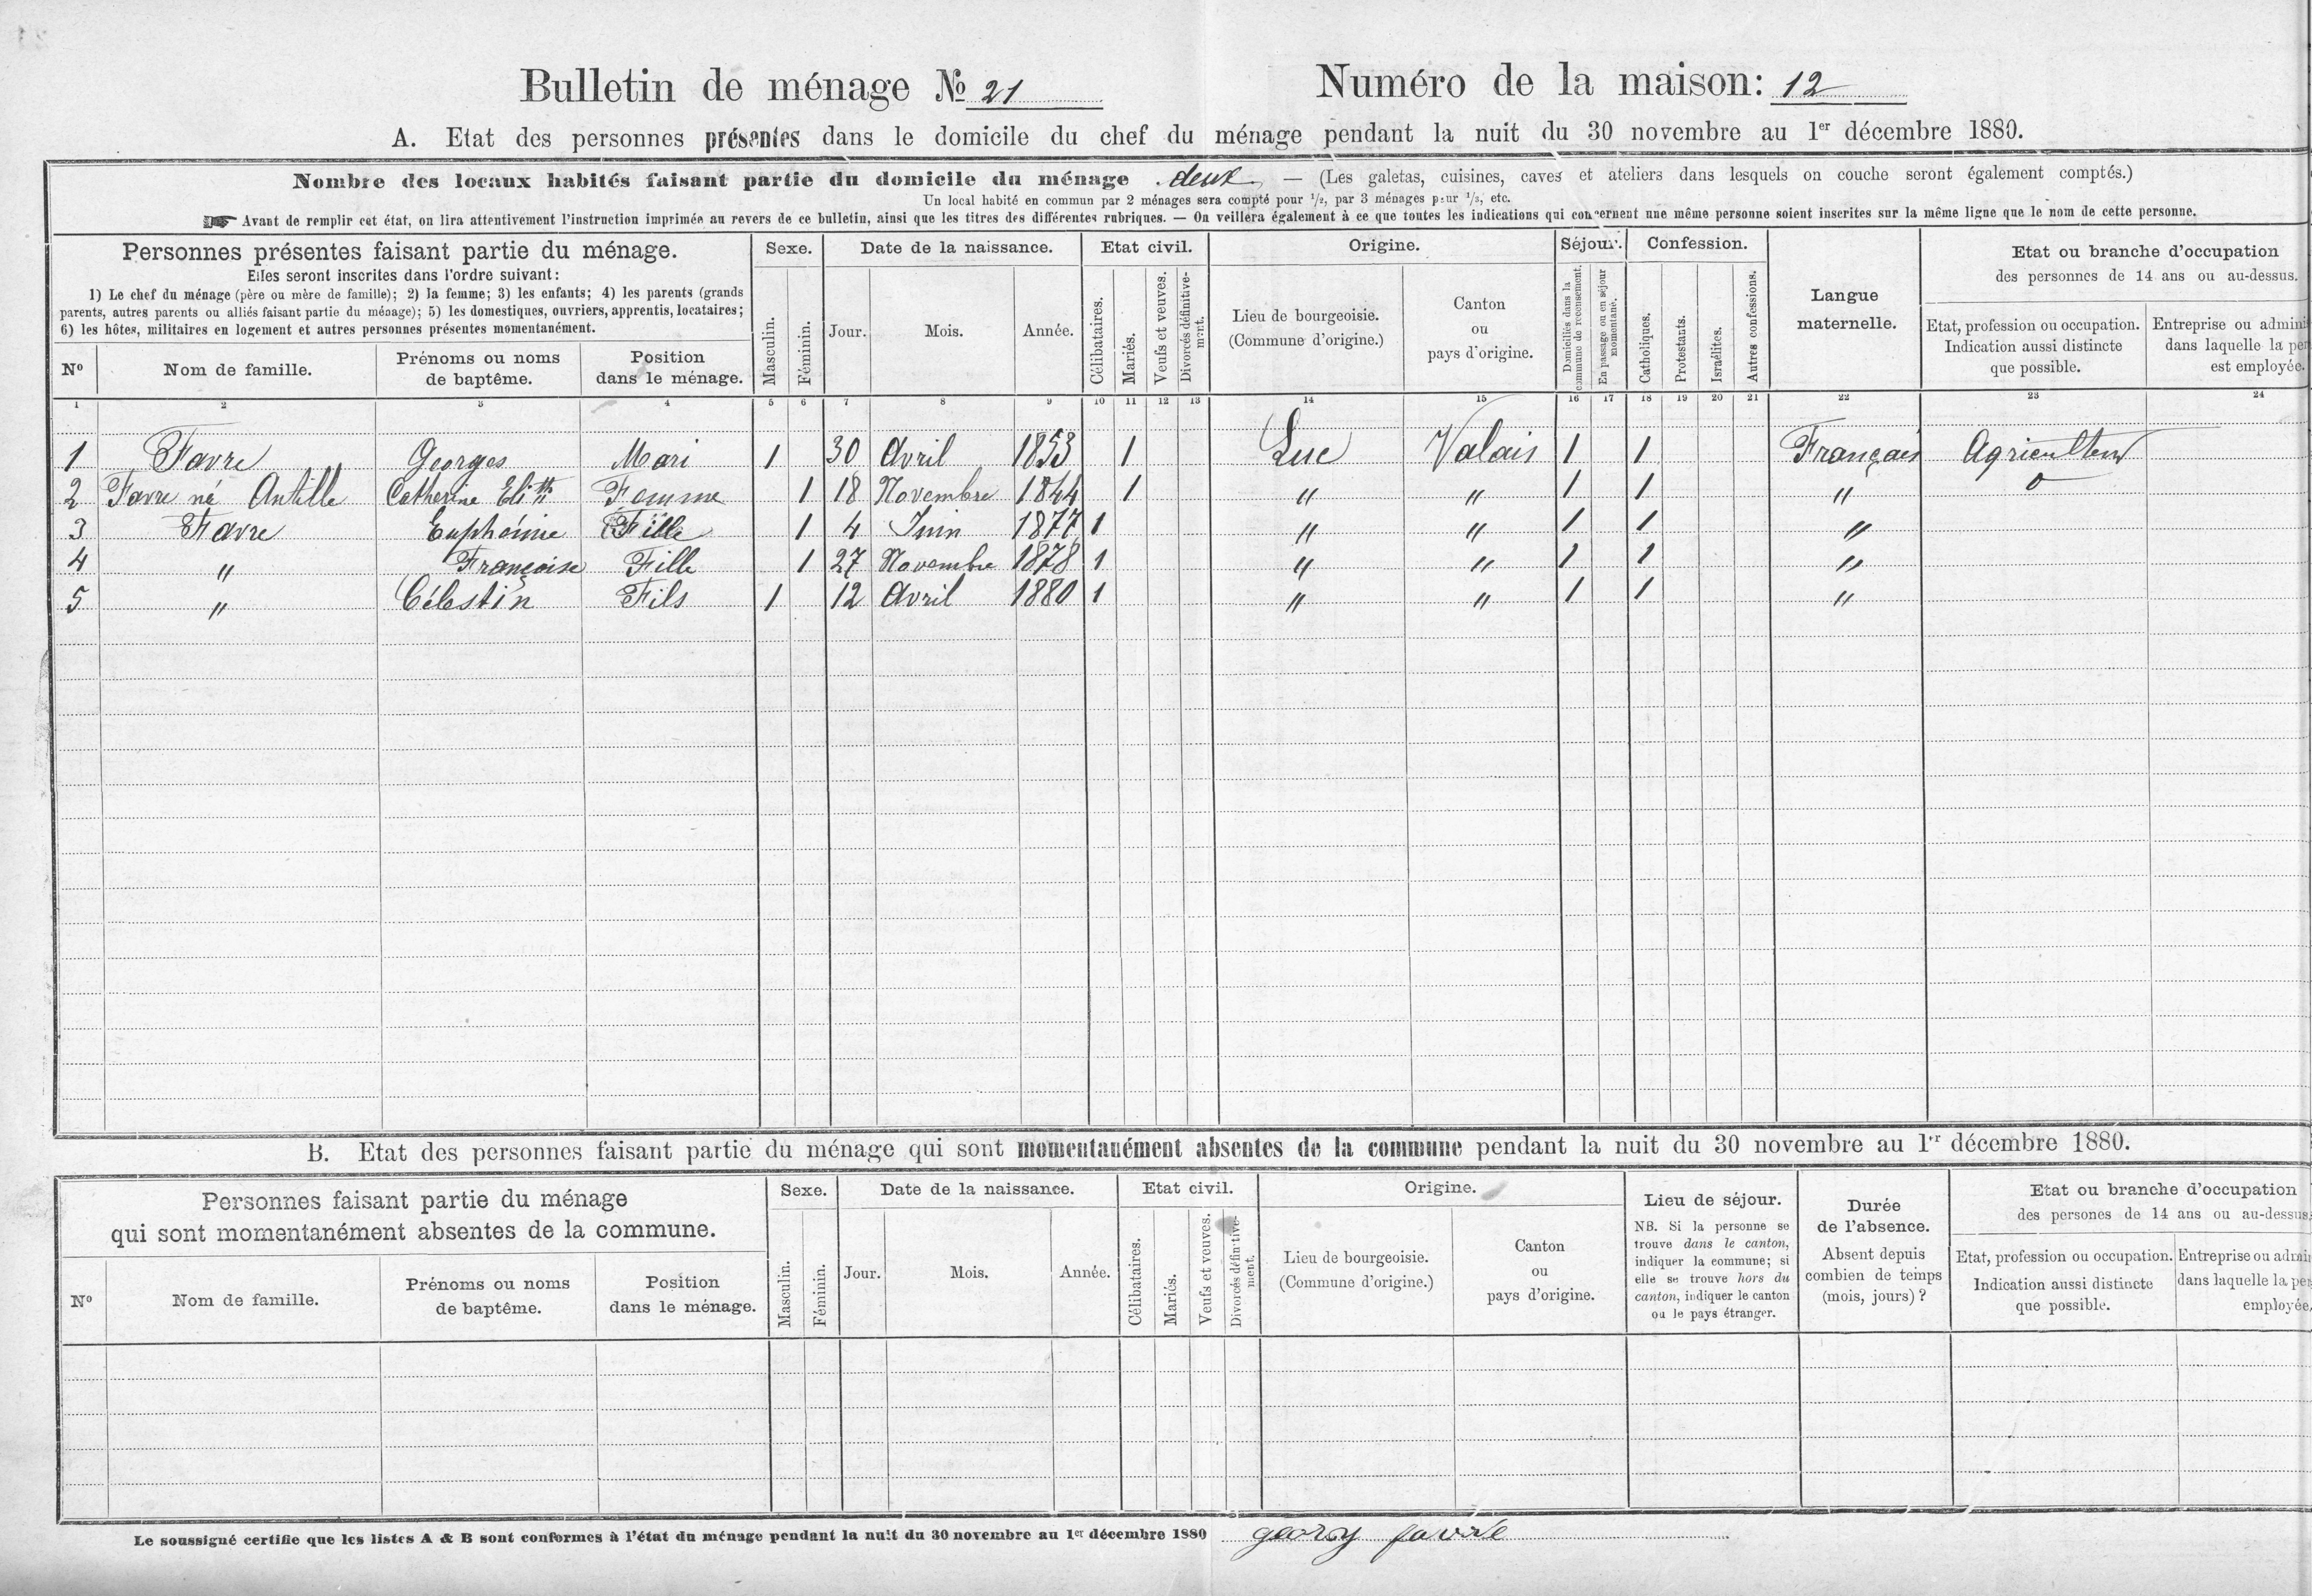 Bulletin de ménage № 21
Numéro de la maison: 12
A. Etat des personnes présentes dans le domicile du chef du ménage pendant la nuit du 30 novembre au 1er décembre 1880.
Nombre des locaux habités faisant partie du domicile du ménage deux — (Les galetas, cuisines, caves et ateliers dans lesquels on couche seront également comptés.)
Un local habité en commun par 2 ménages sera compté pour 1/2, par 3 ménages pour 1/3, etc.
☞ Avant de remplir cet état, on lira attentivement l'instruction imprimée au revers de ce bulletin, ainsi que les titres des différentes rubriques. — On veillera également à ce que toutes les indications qui concernent une même personne soient inscrites sur la même ligne que le nom de cette personne.
Personnes présentes faisant partie du ménage.
Elles seront inscrites dans l'ordre suivant:
1) Le chef du ménage (père ou mère de famille); 2) la femme; 3) les enfants; 4) les parents (grands
parents, autres parents ou alliés faisant partie du ménage); 5) les domestiques, ouvriers, apprentis, locataires;
6) les hôtes, militaires en logement et autres personnes présentes momentanément.
Nº
Nom de famille.
Prénoms ou noms
de baptême.
Position
dans le ménage.
Sexe.
Masculin.
Féminin.
Date de la naissance.
Jour.
Mois.
Année.
Etat civil.
Célibataires.
Mariés.
Veufs et veuves.
Divorcés définitive-
ment.
Origine.
Lieu de bourgeoisie.
(Commune d'origine.)
Canton
ou
pays d'origine.
Séjour.
Domiciliés dans la
commune de recensement.
En passage ou en séjour
momentané.
Confession.
Catholiques.
Protestants.
Israélites.
Autres confessions.
Langue
maternelle.
Etat ou branche d'occupation
des personnes de 14 ans ou au-dessus.
Etat, profession ou occupation.
Indication aussi distincte
que possible.
Entreprise ou admini
dans laquelle la per
est employée.
1 2 3 4 5 6 7 8 9 10 11 12 13 14 15 16 17 18 19 20 21 22 23 24
1 Favre Georges Mari 1 30 Avril 1853 1 Luc Valais 1 1 Français Agriculteur
2 Favre né Antille Catherine Elith Femme 1 18 Novembre 1844 1 " " 1 1 " 0
3 Favre Euphémie Fille 1 4 Juin 1877 1 " " 1 1 "
4 " Françoise Fille 1 27 Novembre 1878 1 " " 1 1 "
5 " Célestin Fils 1 12 Avril 1880 1 " " 1 1 "
B. Etat des personnes faisant partie du ménage qui sont momentanément absentes de la commune pendant la nuit du 30 novembre au 1er décembre 1880.
Personnes faisant partie du ménage
qui sont momentanément absentes de la commune.
Nº
Nom de famille.
Prénoms ou noms
de baptême.
Position
dans le ménage.
Sexe.
Masculin.
Féminin.
Date de la naissance.
Jour.
Mois.
Année.
Etat civil.
Célibataires.
Mariés.
Veufs et veuves.
Divorcés définitive-
ment.
Origine.
Lieu de bourgeoisie.
(Commune d'origine.)
Canton
ou
pays d'origine.
Lieu de séjour.
NB. Si la personne se
trouve dans le canton,
indiquer la commune; si
elle se trouve hors du
canton, indiquer le canton
ou le pays étranger.
Durée
de l'absence.
Absent depuis
combien de temps
(mois, jours) ?
Etat ou branche d'occupation
des persones de 14 ans ou au-dessus.
Etat, profession ou occupation.
Indication aussi distincte
que possible.
Entreprise ou admin
dans laquelle la per
employée.
Le soussigné certifie que les listes A & B sont conformes à l'état du ménage pendant la nuit du 30 novembre au 1er décembre 1880 georg favre